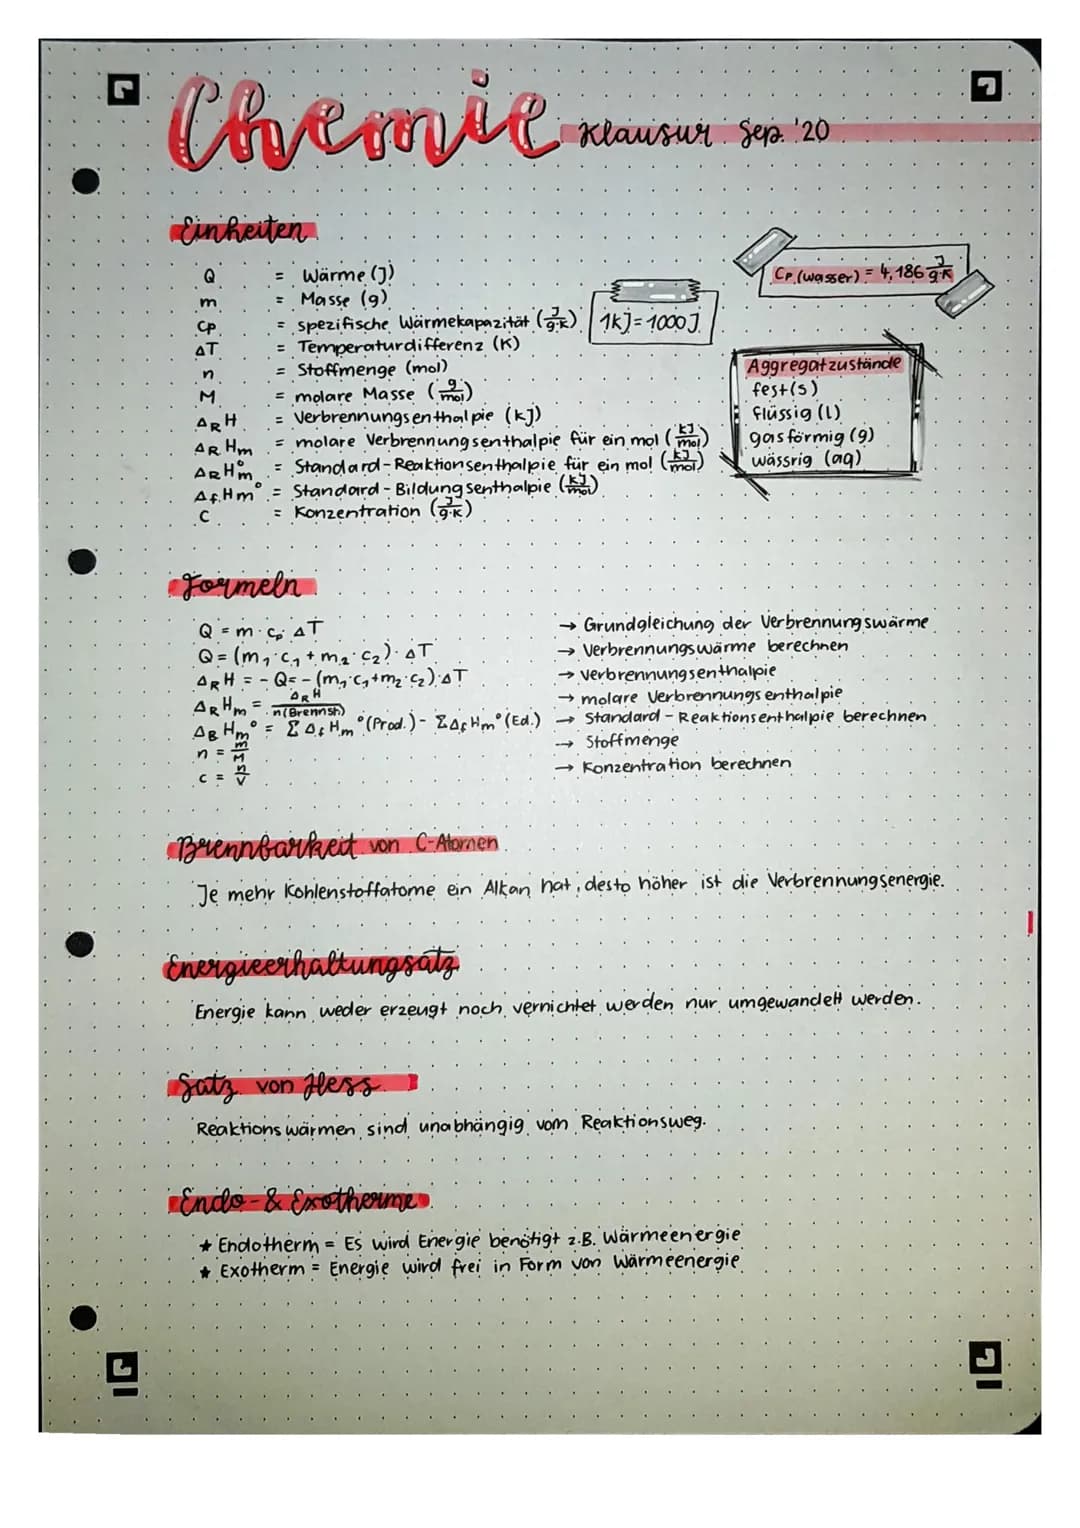 Chemie Klausur Sep. '20
Einheiten
Q = Wärme (J)
m = Masse (g)
Cp = spezifische Wärmekapazität (J/g·K)
ΔT = Temperaturdifferenz (K)
n = Stoffmenge (mol)
M = molare Masse (g/mol)
ΔRH = Verbrennungsenthalpie (kJ)
ΔRHm = molare Verbrennungsenthalpie für ein mol (kJ/mol)
ΔRHm° = Standard-Reaktionsenthalpie für ein mol (kJ/mol)
ΔfHm° = Standard-Bildungsenthalpie (kJ/mol)
C = Konzentration (J/g·K)
1kJ=1000J
Cp (wasser) = 4,186 J/g·K
Aggregatzustände
fest (s)
flüssig (l)
gasförmig (g)
wässrig (aq)
Formeln
Q = m · cp · ΔT → Grundgleichung der Verbrennungswärme
Q = (m₁·c₁ + m₂·c₂) · ΔT → Verbrennungswärme berechnen
ΔRH = -Q = -(m₁·c₁+m₂·c₂)·ΔT → Verbrennungsenthalpie
ΔRHm = ΔRH/n(Brennst) → molare Verbrennungsenthalpie
ΔBHm° = ΣΔfHm°(Prod.) - ΣΔfHm°(Ed.) → Standard-Reaktionsenthalpie berechnen
n = m/M → Stoffmenge
c = n/V → Konzentration berechnen
Brennbarkeit von C-Atomen
Je mehr Kohlenstoffatome ein Alkan hat, desto höher ist die Verbrennungsenergie.
Energieerhaltungsatz
Energie kann weder erzeugt noch vernichtet werden nur umgewandelt werden.
Satz von Hess
Reaktionswärmen sind unabhängig vom Reaktionsweg.
Endo- & Exotherme
★ Endotherm = Es wird Energie benötigt z.B. Wärmeenergie
★ Exotherm = Energie wird frei in Form von Wärmeenergie